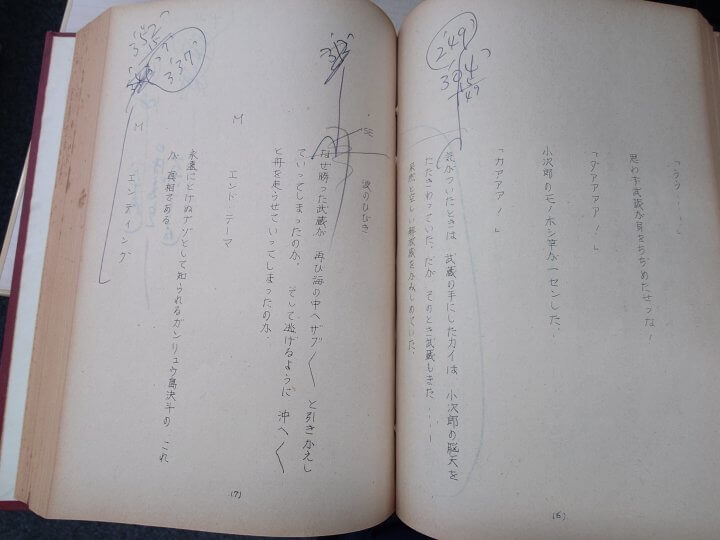 「ウウ・・・・」
思わず武蔵が身をちぢめたせつな！
「ダアアアア！」
小次郎のモノホシ竿が一センした。
「カアアアア！」
気がついたときは、武蔵の手にしたカイは、小次郎の脳天を
たたきわっていた。だが、そのとき武蔵もまた・・・・
249
304
49
(6)
SE
波のひびき
なぜ勝った武蔵が、再び海の中へザブ〱と引きかえし
ていってしまったのか、そして逃げるように、沖へ〱
と舟を走らせていってしまったのか。
M
エンド・テーマ
永遠にとけぬナゾとして知られるガンリュウ島決斗の、これ
が真相である。
M
エンディング
352
337
(7)